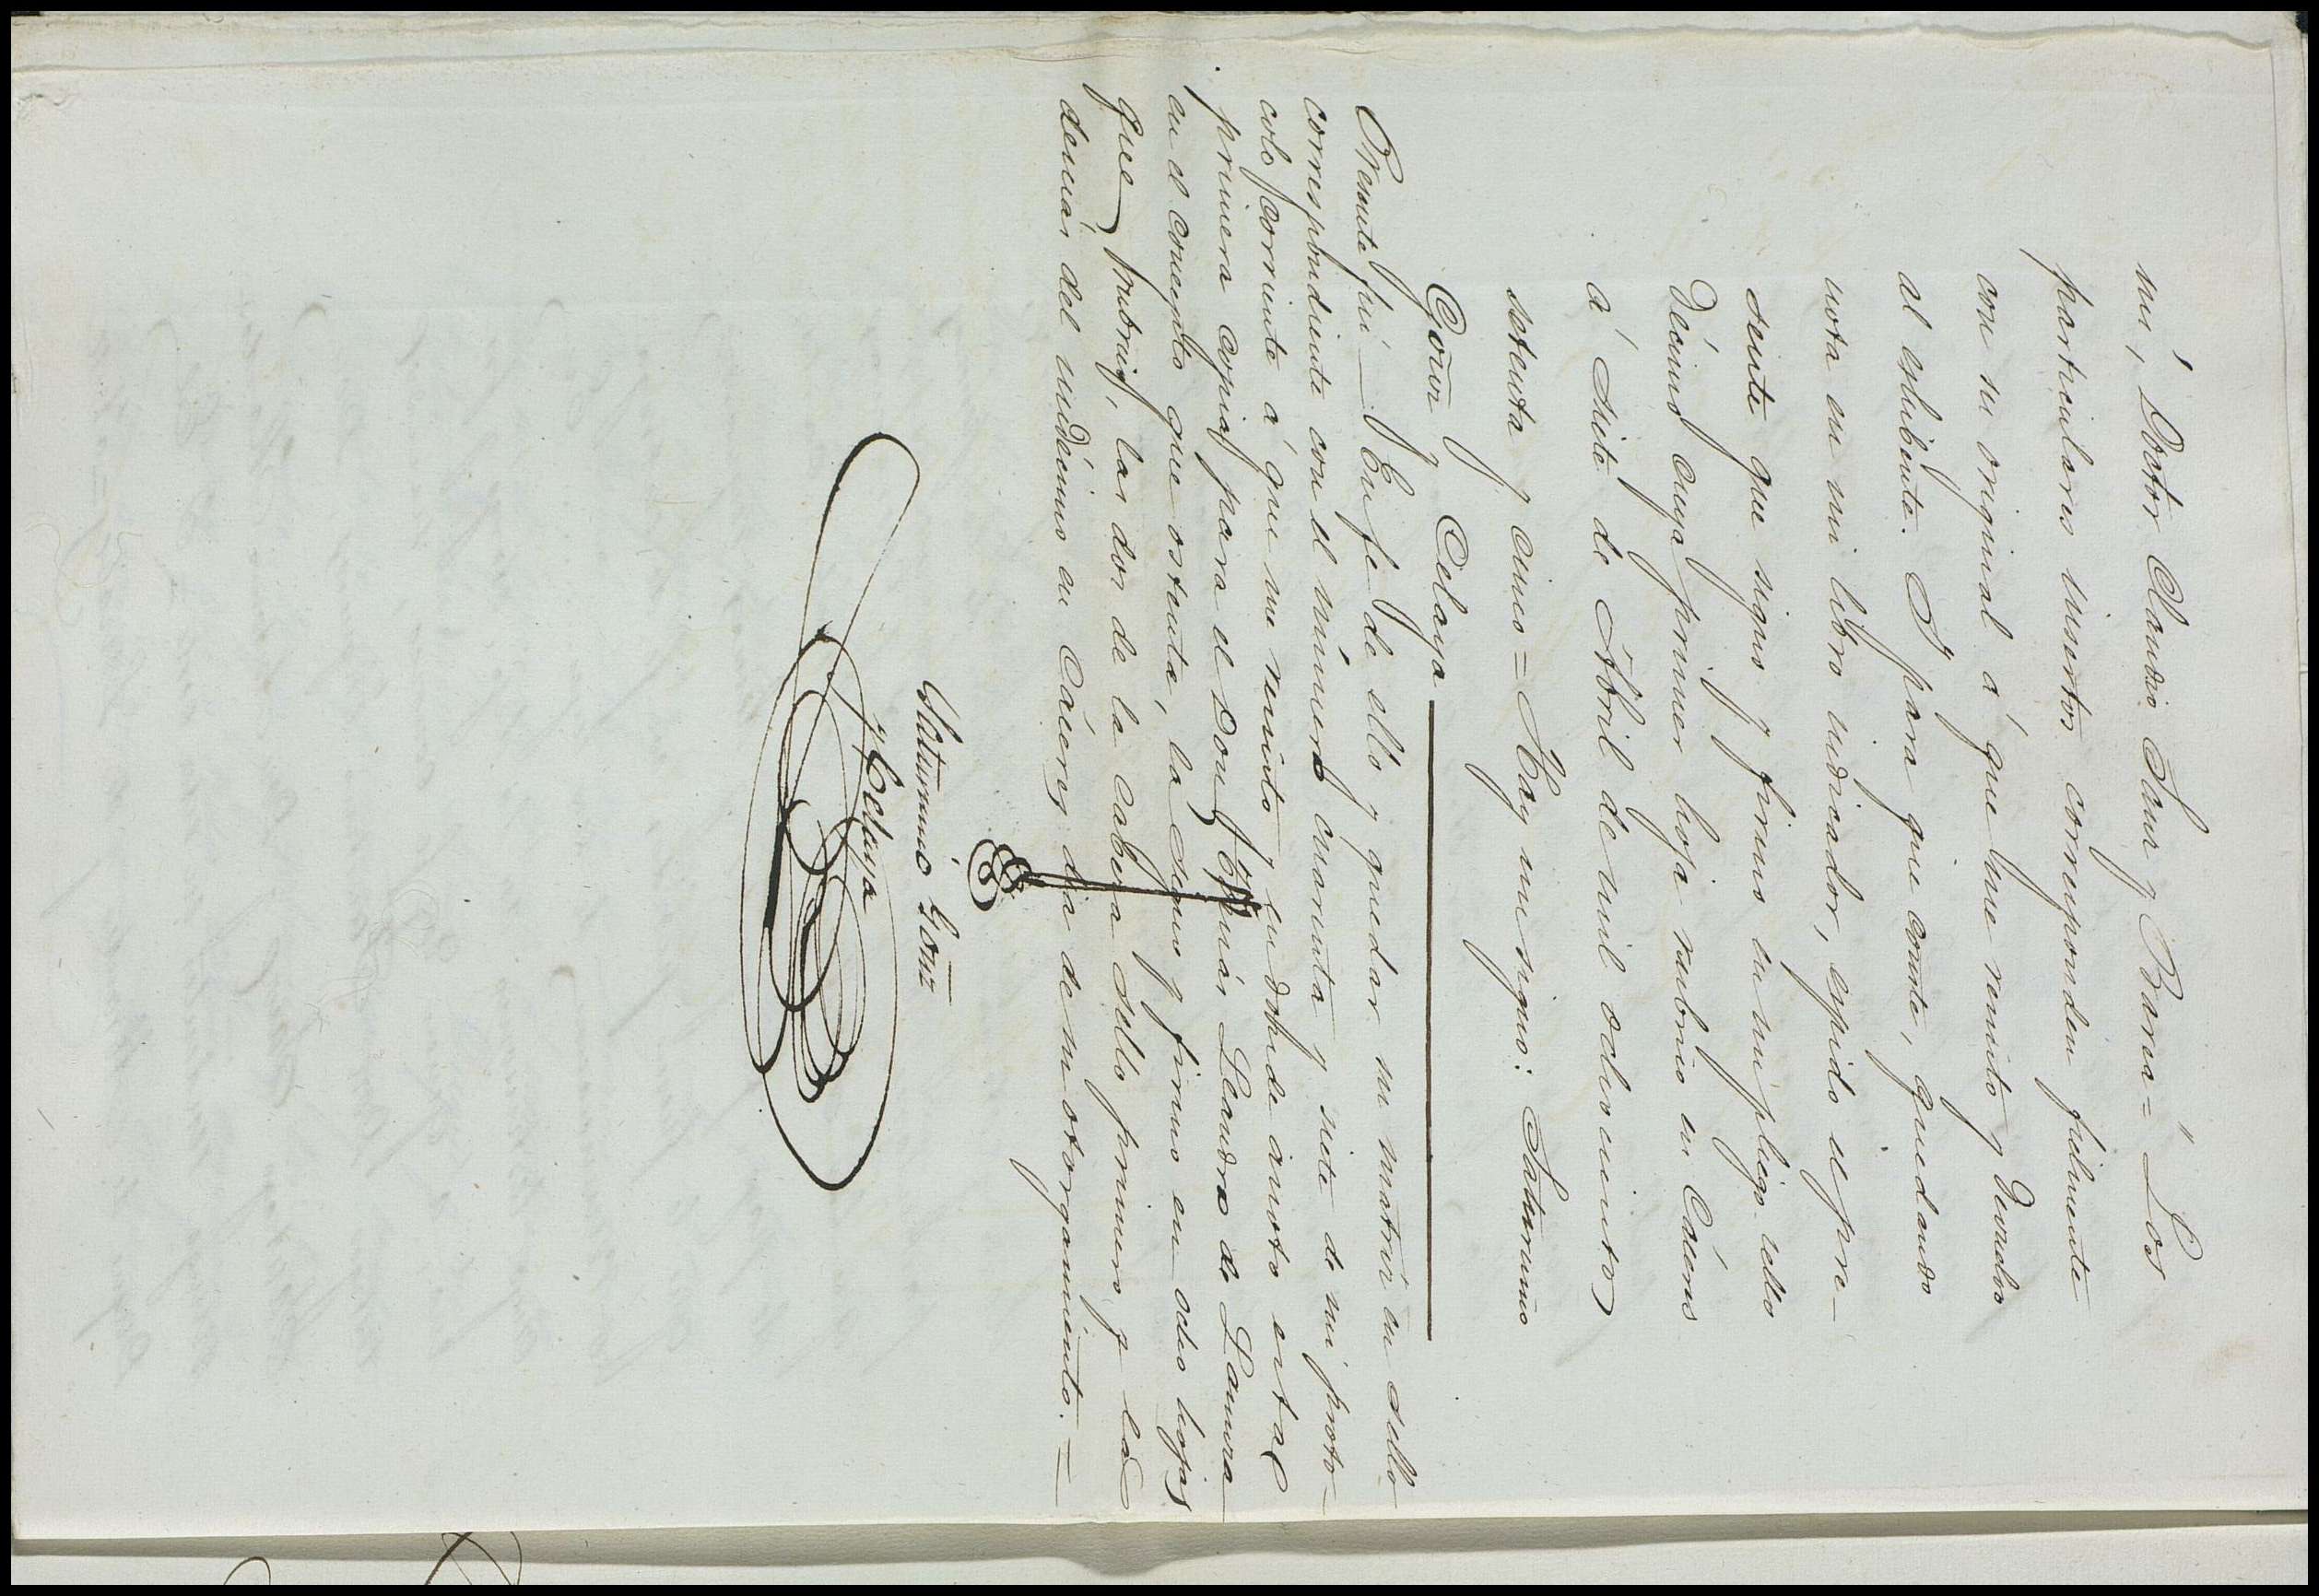 mí, Doctor Claudio Sanz y Barea="Los
particulares insertos corresponden fielmente
con su original á que me remito y devuelvo
al eshibente. Y para que conste, quedando
nota en mi libro indicador, espido el pre-
sente que signo y firmo en un pliego sello
décimo cuya primer hoja rubrico en Cáceres
á siete de Abril de mil ochocientos
setenta y cinco = Hay un signo: Saturnino
Gonz y Celaya
Presente fuí — En fe de ello y quedar su matriz en sello
correspondiente con el número cuarenta y siete de mi proto-
colo corriente á que me remito y en donde anoto esta
primera copia para el Don Tomás Leandro de Lamora
en el concepto que ostenta, la signo y firmo en ocho hojas
que rubrico, las dos de la cabeza sello primero y las
demás del undécimo en Cáceres dia de su otorgamiento. =
Saturnino Gonz
y Celaya